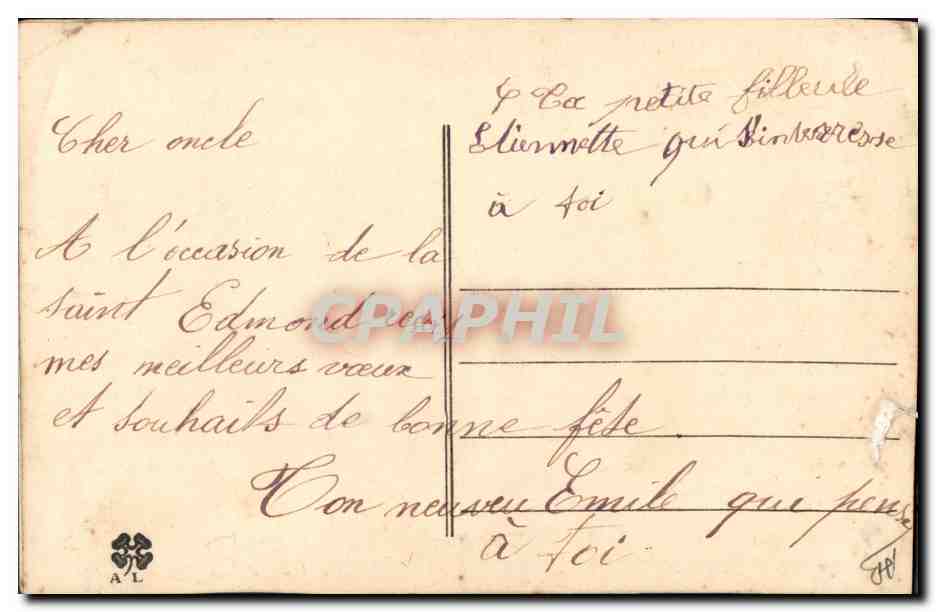 Cher oncle
A l'occasion de la
saint Edmond reçois
mes meilleurs vœux
et souhaits de bonne fête.
Ton neuveu Emile qui pense
à toi
Ta petite filleule
Etiennette qui s'interesse
à toi
CPAPHIL
A L